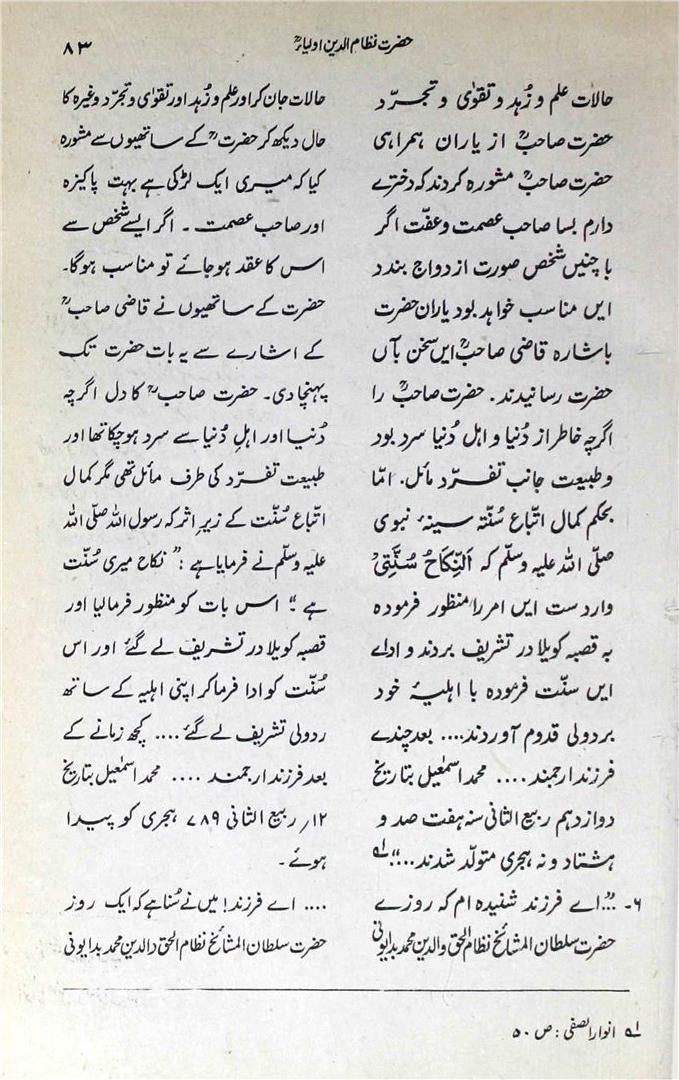 حضرت نظام الدین اولیاءؒ
۸۳
حالات علم و زُہد و تقوٰی و تجرّد
حضرت صاحبؒ از یاران ہمراہی
حضرت صاحبؒ مشورہ کردند کہ دخترے
دارم بسا صاحب عصمت و عفّت اگر
با چنیں شخص صورت ازدواج بندد
ایں مناسب خواہد بود یاران حضرت
باشارہ قاضی صاحبؒ ایں سخن بآں
حضرت رسانیدند۔ حضرت صاحبؒ را
اگرچہ خاطر از دُنیا و اہل دُنیا سرد بود
و طبیعت جانب تفرّد مائل۔ امّا
بحکم کمال اتّباع سُنّتہ سینۂ نبوی
صلّی اللہ علیہ وسلّم کہ اَلنِّکَاحُ سُنَّتِیْ
وارد ست ایں امر را منظور فرمودہ
بہ قصبہ کویلا در تشریف بردند و اداے
ایں سنّت فرمودہ با اہلیۂ خود
بردولی قدوم آوردند.... بعد چندے
فرزند ارجمند .... محمد اسمٰعیل بتاریخ
دوازدہم ربیع الثانی سنہ ہفت صد و
ہشتاد و نہ ہجری متولّد شدند....“ ؎۱
۶۔ ”...اے فرزند شنیدہ ام کہ روزے
حضرت سلطان المشائخ نظام الحق والدین محمد بدایونی
حالات جان کر اور علم و زُہد اور تقوٰی و تجرّد وغیرہ کا
حال دیکھ کر حضرتؒ کے ساتھیوں سے مشورہ
کیا کہ میری ایک لڑکی ہے بہت پاکیزہ
اور صاحب عصمت ۔ اگر ایسے شخص سے
اس کا عقد ہو جائے تو مناسب ہوگا۔
حضرت کے ساتھیوں نے قاضی صاحبؒ
کے اشارے سے یہ بات حضرت تک
پہنچا دی۔ حضرت صاحبؒ کا دل اگرچہ
دُنیا اور اہلِ دُنیا سے سرد ہوچکا تھا اور
طبیعت تفرّد کی طرف مائل تھی مگر کمال
اتّباع سُنّت کے زیرِ اثر کہ رسول اللہ صلّی اللہ
علیہ وسلّم نے فرمایا ہے : ”نکاح میری سُنّت
ہے“۔ اس بات کو منظور فرمالیا اور
قصبہ کویلا در تشریف لے گئے اور اس
سُنّت کو ادا فرما کر اپنی اہلیہ کے ساتھ
ردولی تشریف لے گئے .... کچھ زمانے کے
بعد فرزند ارجمند .... محمد اسمٰعیل بتاریخ
۱۲؍ ربیع الثانی ۷۸۹ ہجری کو پیدا
ہوئے ۔
.... اے فرزند! میں نے سُنا ہے کہ ایک روز
حضرت سلطان المشائخ نظام الحق دالدین محمد بدایونی
؎۱ انوار الصفی : ص ۵۰